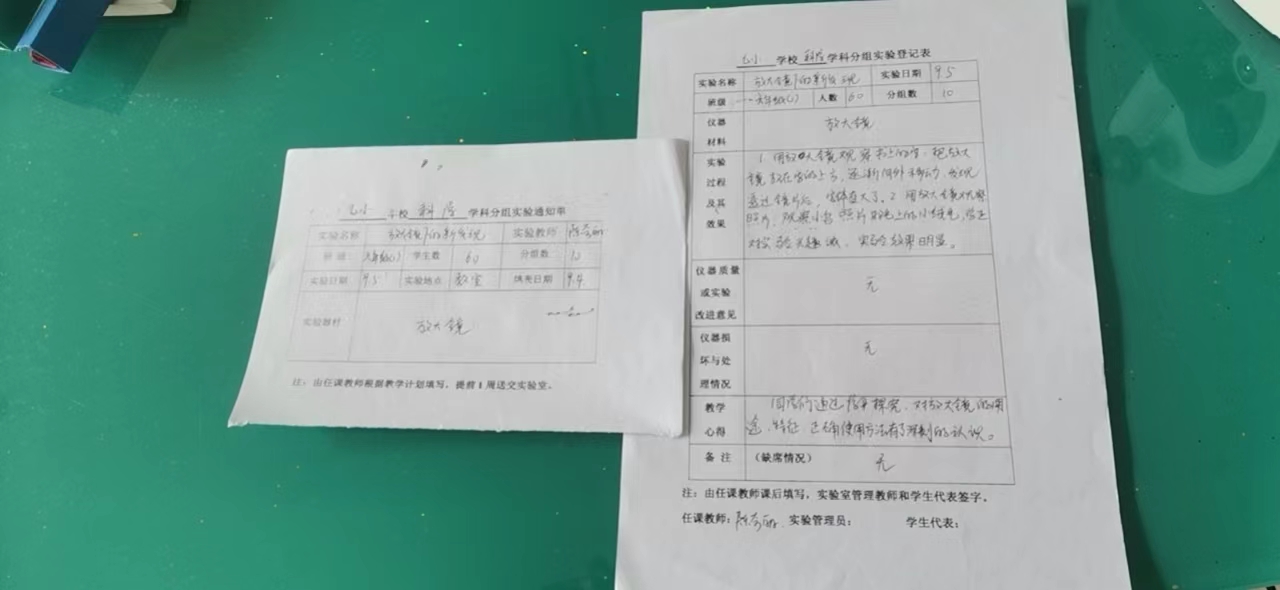 学校 科学 学科分组实验通知单
实验名称 放大镜下的新发现 实验教师
班级 六年级(1) 学生数 60 分组数 10
实验日期 9.5 实验地点 教室 填表日期 9.4
实验器材 放大镜
注：由任课教师根据教学计划填写，提前1周送交实验室。
学校 科学 学科分组实验登记表
实验名称 放大镜下的新发现 实验日期 9.5
班级 六年级(1) 人数 60 分组数 10
仪器材料 放大镜
实验过程及其效果
1. 用放大镜观察书上的字，把放大
镜放在字的上方，逐渐向外移动，发现
透过镜片后，字体变大了。2. 用放大镜观察
照片，观察
对实验 感 ，实验效果明显。
仪器质量或实验改进意见 无
仪器损坏与处理情况 无
教学心得
同学们通过 探究，对放大镜的用
途、特征、正确使用方法有了深刻的认识。
备注 （缺席情况） 无
注：由任课教师课后填写，实验室管理教师和学生代表签字。
任课教师： 实验管理员： 学生代表：